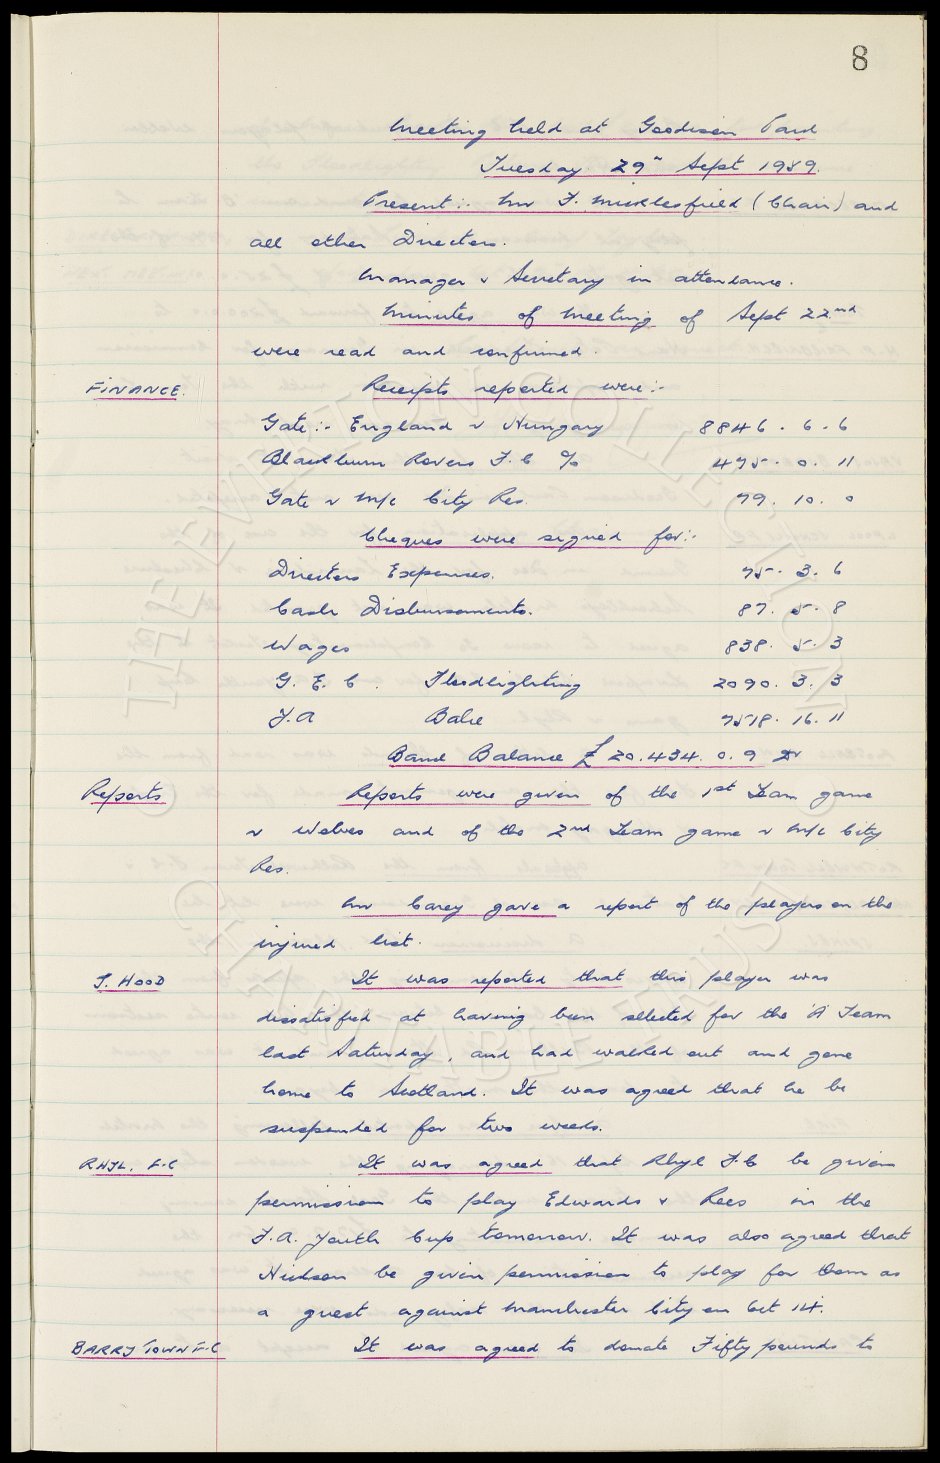 8
Meeting held at Goodison Park
Tuesday 29th Sept 1959.
Present:- Mr F. Micklesfield (Chair) and
all other Directors.
Manager & Secretary in attendance.
Minutes of meeting of Sept 22nd
were read and confirmed.
FINANCE. Receipts reported were:-
Gate:- England v Hungary 8846. 6. 6
Blackburn Rovers F.C % 475. 0. 11
Gate v M/c City Res. 79. 10. 0
Cheques were signed for:-
Directors Expenses. 75. 3. 6
Cash Disbursements. 87. 5. 8
Wages 838. 5. 3
G. E. C. Floodlighting 2090. 3. 3
F.A Balce 7518. 16. 11
Bank Balance £20.434. 0. 9 Dr
Reports Reports were given of the 1st Team game
v Wolves and of the 2nd Team game v M/c City
Res.
Mr Carey gave a report of the players on the
injured list.
J. HOOD It was reported that this player was
dissatisfied at having been selected for the 'A' Team
last Saturday, and had walked out and gone
home to Scotland. It was agreed that he be
suspended for two weeks.
RHYL. F.C It was agreed that Rhyl F.C be given
permission to play Edwards & Rees in the
F.A. Youth Cup tomorrow. It was also agreed that
be given permission to play for them as
a guest against Manchester City on Oct 14.
BARRY TOWN F.C It was agreed to donate Fifty pounds to
THE EVERTON COLLECTION
CHARITABLE TRUST